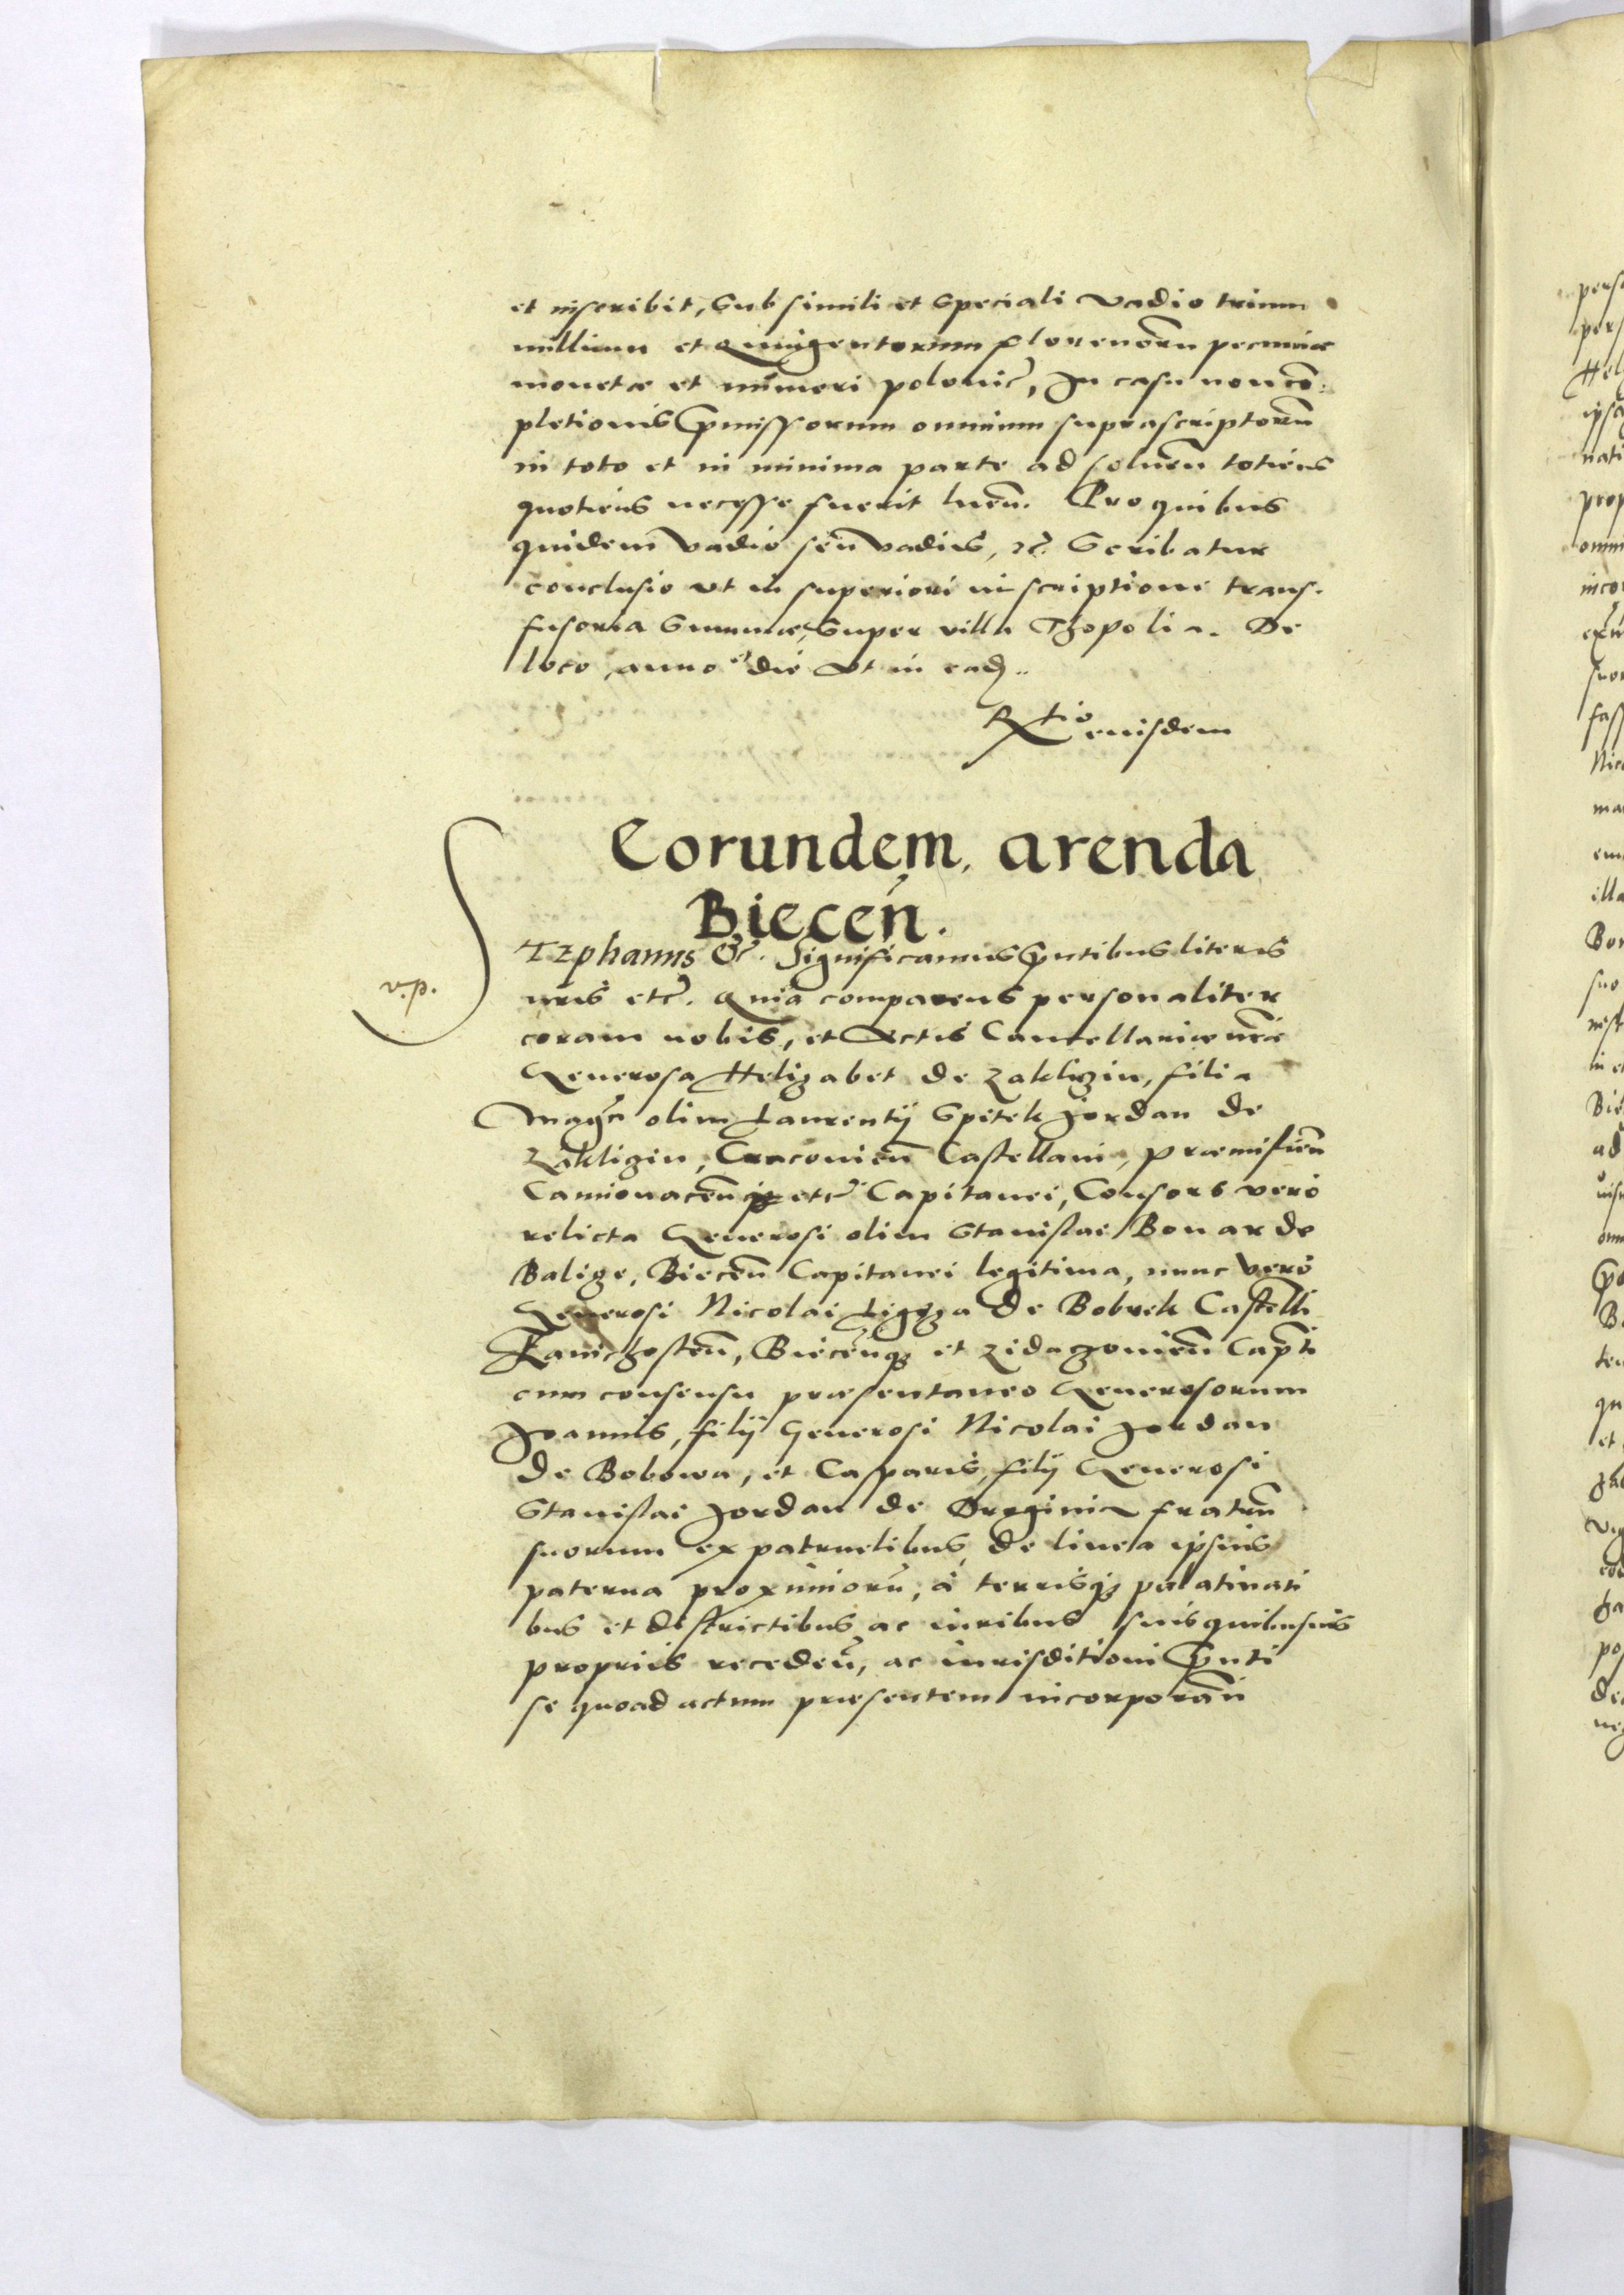 et inscribit, Sub simili et speciali vadio trium
millium et Quingentorum florenorū pecuniæ
monetæ et numeri polonic̄, In casu non cō:
pletionis p̄missorum omnium suprascriptorū
in toto et in minima parte ad soluen̄ totiens
quotiens necesse fuerit luen̄. Pro quibus
quidem vadio seu vadiis, etc̄. Scribatur
conclusio vt in superiori inscriptione trans.
fusoria Summæ, Super villa Thopolia. De
loco, anno et die vt in ead̄..
Rtio euisdem
Eorundem, arenda
Biecen̄.
v.p.
STEphanus &c. Significamus p̄ntibus literis
nr̄is etc̄. Quia comparens personaliter
coram nobis, et Actis Cancellariæ nr̄æ
Generosa Helizabet de Zaklizin, filia
Mag.ci olim Laurentij Spitek Jordan de
Zakligin, Cracouien̄ Castellani, præmislien̄
Camionacen̄q3 etc̄ Capitanei, Consors vero
relicta Generosi olim Stanislai Bonar de
Balige, Biecen̄ Capitanei legitima, nunc vero
Generosi Nicolai Ligęza de Bobrek Castelli
Zauichosten̄, Biecen̄q3 et Zidaczouien̄ Capti
cum consensu præsentaneo Generosorum
Joannis, filij Generosi Nicolai Jordan
de Bobowa, et Casparis, filij Generosi
Stanislai Jordan de Droginia fratrū
suorum ex patruelibus, de linea ipsius
paterna proximiorū, à terrisq3 palatinati
bus et districtibus ac iuribus suis quibusuis
propriis receden̄, ac iurisditioni p̄nti
se quoad actum præsentem incorporan̄